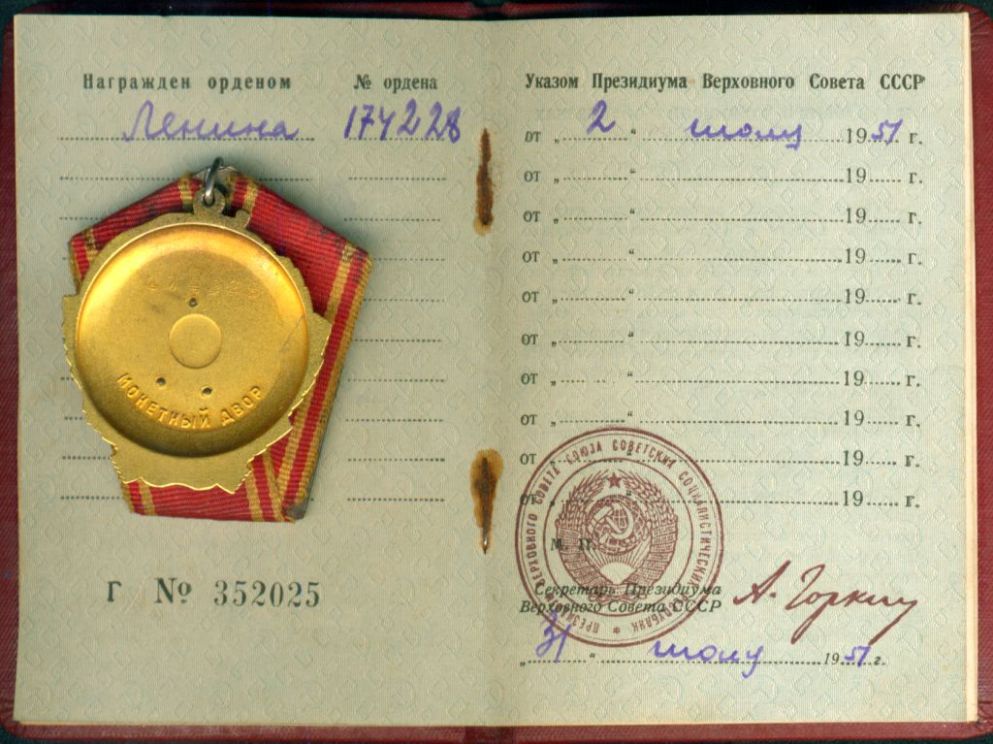 Награжден орденом № ордена
Ленина 174228
МОНЕТНЫЙ ДВОР
Г № 352025
Указом Президиума Верховного Совета СССР
от „ 2 “ июля 1951 г.
от „ “ 19 г.
от „ “ 19 г.
от „ “ 19 г.
от „ “ 19 г.
от „ “ 19 г.
от „ “ 19 г.
от „ “ 19 г.
от „ “ 19 г.
от „ “ 19 г.
ПРЕЗИДИУМ ВЕРХОВНОГО СОВЕТА СОЮЗА СОВЕТСКИХ СОЦИАЛИСТИЧЕСКИХ РЕСПУБЛИК
М. П.
Секретарь Президиума
Верховного Совета СССР А. Горкин
„ 31 “ июля 1951 г.